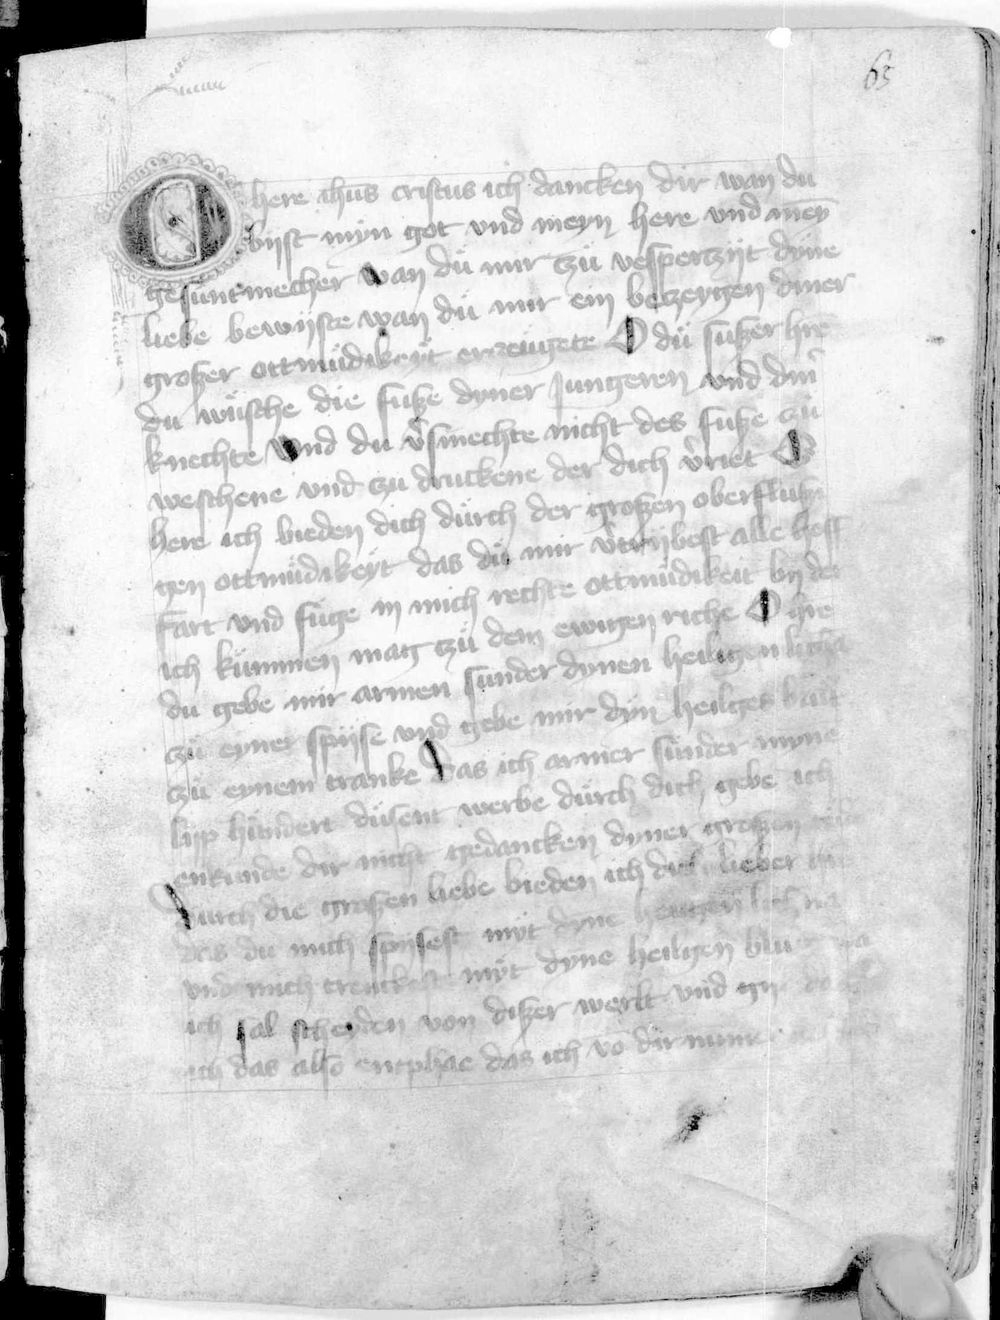 65
O here ihus cristus ich dancken dir wan du
bijst myn got vnd meyn here vnd mey̅
gesuntmecher wan dü mir zü vesperzijt dyne
liebe bewijste wan dü mir ein betzeygen diner
großer ottmüdikeyt erzeugete O dü sußer hre
du wüsche die fuße dyner Jungeren vnd din̅
knechte Vnd du v̓smechte nicht des fuße zü
weschene vnd zu druckene der dich v̓riet O
here ich bieden dich dürch der großen oberflußi
gen ottmüdikeyt das dü mir v̓trijbest alle hoff
fart vnd füge in mich rechte ottmüdikeit bij der
ich kümmen mag zü dem ewigen riche O hre
du gebe mir armen sunder dynen heiligen
zü eyner spijse vnd gebe mir dyn heilges
zü eynem tranke Das ich armer sünder myne
lijp hündert düsent werbe dürch dich gebe ich
enkunde dir nicht gedancken dyner großen
Durch die großen liebe bieden ich dich lieber
das du mich spijsest myt dyne heiligen
vnd mich trenckest myt dyne heiligen blut
ich sal scheyden von dißer werlt vnd
ich das also entphae das ich vo̅ dir